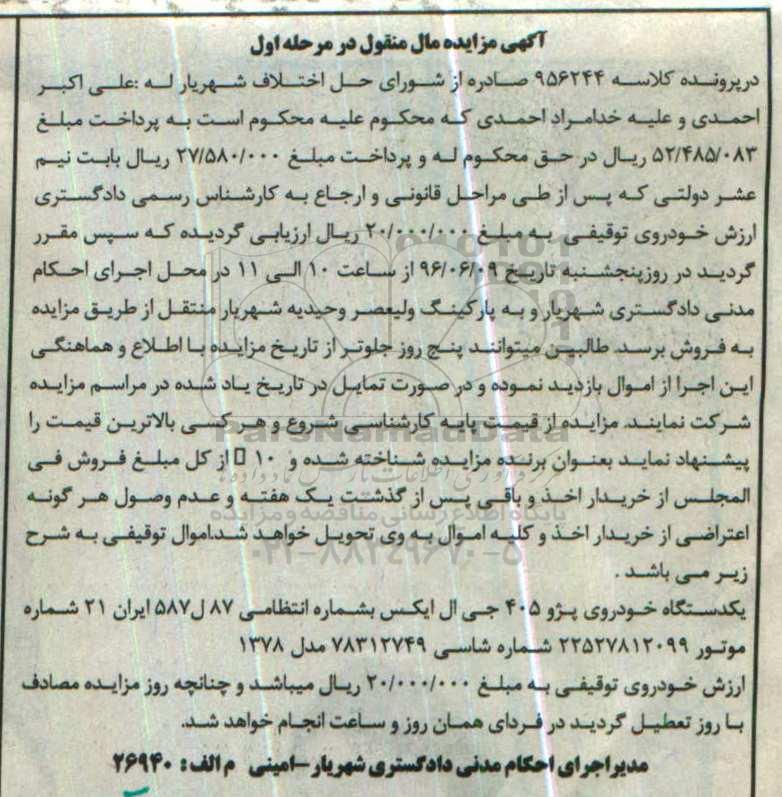 آگهی مزایده مال منقول در مرحله اول
درپرونده کلاسه ۹۵۶۲۴۴ صادره از شورای حل اختلاف شهریار له :علی اکبر
احمدی و علیه خدامراد احمدی که محکوم علیه محکوم است به پرداخت مبلغ
۵۲/۴۸۵/۰۸۳ ریال در حق محکوم له و پرداخت مبلغ ۲۷/۵۸۰/۰۰۰ ریال بابت نیم
عشر دولتی که پس از طی مراحل قانونی و ارجاع به کارشناس رسمی دادگستری
ارزش خودروی توقیفی به مبلغ ۲۰/۰۰۰/۰۰۰ ریال ارزیابی گردیده که سپس مقرر
گردید در روزپنجشنبه تاریخ ۹۶/۰۶/۰۹ از ساعت ۱۰ الی ۱۱ در محل اجرای احکام
مدنی دادگستری شهریار و به پارکینگ ولیعصر وحیدیه شهریار منتقل از طریق مزایده
به فروش برسد. طالبین میتوانند پنج روز جلوتر از تاریخ مزایده با اطلاع و هماهنگی
این اجرا از اموال بازدید نموده و در صورت تمایل در تاریخ یاد شده در مراسم مزایده
شرکت نمایند. مزایده از قیمت پایه کارشناسی شروع و هر کسی بالاترین قیمت را
ParsNamadData
پیشنهاد نماید بعنوان برنده مزایده شناخته شده و ۱۰ از کل مبلغ فروش فی
المجلس از خریدار اخذ و باقی پس از گذشت یک هفته و عدم وصول هر گونه
پایگاه اطلاع رسانی مناقصه و مزایده
اعتراضی از خریدار اخذ و کلیه اموال به وی تحویل خواهد شد.اموال توقیفی به شرح
۰۲۱-۸۸۳۴۹۶۷۰-۵
زیر می باشد .
یکدستگاه خودروی پژو ۴۰۵ جی ال ایکس بشماره انتظامی ۸۷ ل۵۸۷ ایران ۲۱ شماره
موتور ۲۲۵۲۷۸۱۲۰۹۹ شماره شاسی ۷۸۳۱۲۷۴۹ مدل ۱۳۷۸
ارزش خودروی توقیفی به مبلغ ۲۰/۰۰۰/۰۰۰ ریال میباشد و چنانچه روز مزایده مصادف
با روز تعطیل گردید در فردای همان روز و ساعت انجام خواهد شد.
مدیراجرای احکام مدنی دادگستری شهریار-امینی م الف: ۲۶۹۴۰